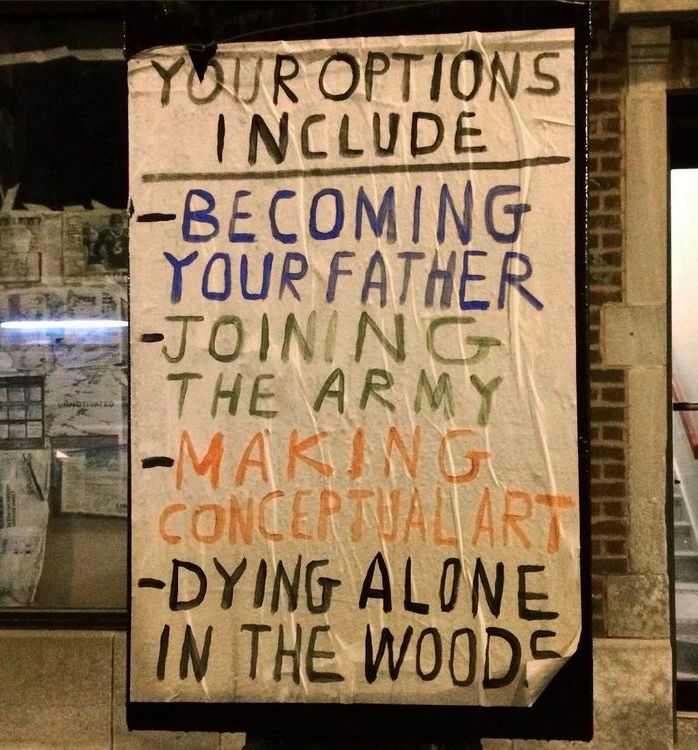 YOUR OPTIONS
INCLUDE
-BECOMING
YOUR FATHER
-JOINING
THE ARMY
-MAKING
CONCEPTUAL ART
-DYING ALONE
IN THE WOODS